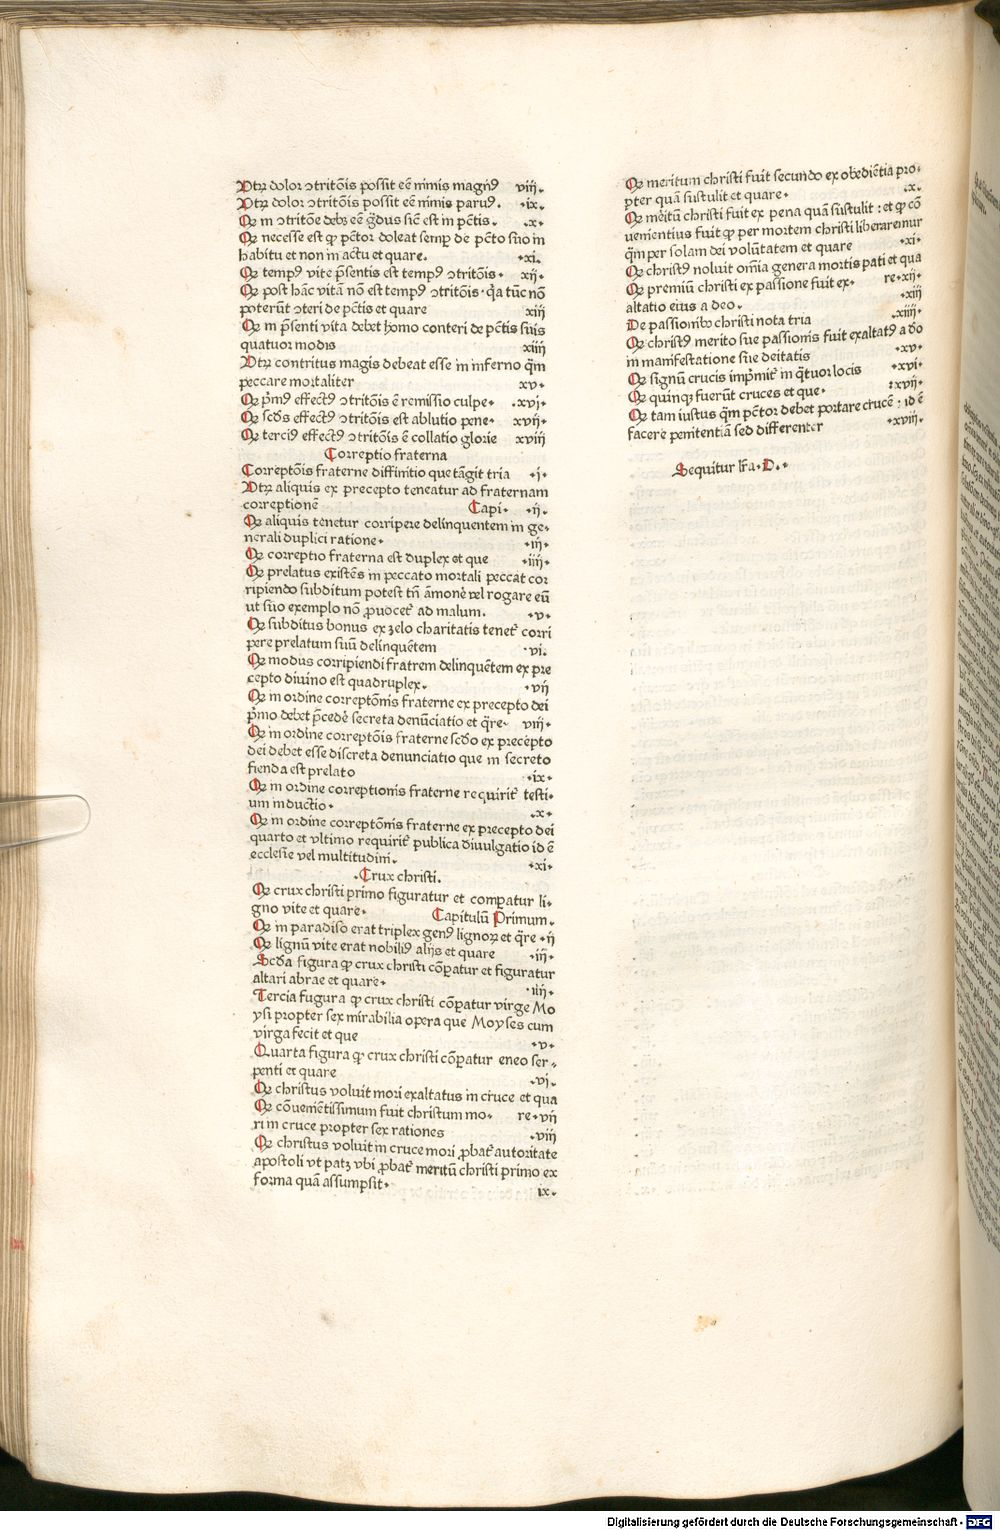 Vtꝝ dolor ↄtritōis possit eē nimis magnꝰ viij.
Vtꝝ dolor ↄtritōis possit eē nimis paruꝰ. .ix.
Qꝫ in ↄtritōe debꝫ eē g̈dus sic̄ est in pc̄tis. .x.
Qꝫ necesse est ꝙ pc̄tor doleat semꝑ de pc̄to suo in
habitu et non in actu et quare. .xi.
Qꝫ tempꝰ vite p̄sentis est tempꝰ ↄtritōis. xij.
Qꝫ post hāc vitā nō est tempꝰ ↄtritōis. q̇a tūc nō
poterūt ↄteri de pc̄tis et quare xiij
Qꝫ in p̄senti vita debet homo conteri de pc̄tis suis
quatuor modis xiiij
Vtꝝ contritus magis debeat esse in inferno q̄m
peccare mortaliter xv.
Qꝫ p̄mꝰ effectꝰ ↄtritōis ē remissio culpe. .xvi.
Qꝫ scd̄s effectꝰ ↄtritōis est ablutio pene. xvij.
Qꝫ terciꝰ effectꝰ ↄtritōis ē collatio glorie xviij
Correptio fraterna
Correptōis fraterne diffinitio que tāgit tria .i.
Vtꝝ aliquis ex precepto teneatur ad fraternam
correptionē Capi. .ij.
Qꝫ aliquis tenetur corripere delinquentem in ge-
nerali duplici ratione. .iij.
Qꝫ correptio fraterna est duplex et que .iiij.
Qꝫ prelatus existēs in peccato mortali peccat cor
ripiendo subditum potest tn̄ amonē vel rogare eū
ut suo exemplo nō ꝓuocet᷑ ad malum. .v.
Qꝫ subditus bonus ex zelo charitatis tenet᷑ corri
pere prelatum suū delinquētem .vi.
Qꝫ modus corripiendi fratrem delinquētem ex pre
cepto diuino est quadruplex. .vij
Qꝫ in ordine correptōnis fraterne ex precepto dei
p̄mo debet p̄cedē secreta denūciatio et q̄re. viij.
Qꝫ in ordine correptōis fraterne scd̄o ex precepto
dei debet esse discreta denunciatio que in secreto
fienda est prelato .ix.
Qꝫ in ordine correptionis fraterne requirit᷑ testi-
um inductio. .x.
Qꝫ in ordine correptōnis fraterne ex precepto dei
quarto et vltimo requirit᷑ publica diuulgatio id ē
ecclesie vel multitudini. .xi.
.Crux christi.
Qꝫ crux christi primo figuratur et comꝑatur li-
gno vite et quare. Capitulū Primum.
Qꝫ in paradiso erat triplex genꝰ lignoꝝ et q̄re .ij
Qꝫ lignū vite erat nobiliꝰ alijs et quare .iij.
Scd̄a figura ꝙ crux christi cōꝑatur et figuratur
altari abrae et quare. .iiij.
Tercia fugura ꝙ crux christi cōꝑatur virge Mo
ysi propter sex mirabilia opera que Moyses cum
virga fecit et que .v.
Quarta figura ꝙ crux christi cōꝑatur eneo ser-
penti et quare .vi.
Qꝫ christus voluit mori exaltatus in cruce et qua
Qꝫ cōuenientissimum fuit christum mo. re.vij
ri in cruce propter sex rationes .viij
Qꝫ christus voluit in cruce mori ꝓbat᷑ autoritate
apostoli vt patꝫ vbi ꝓbat᷑ meritū christi primo ex
forma quā assumpsit. ix.
Qꝫ meritum christi fuit secundo ex obediētia pro-
pter quā sustulit et quare. .x.
Qꝫ meritū christi fuit ex pena quā sustulit : et ꝙ cō
uenientius fuit ꝙ per mortem christi liberaremur
q̄m per solam dei volūtatem et quare .xi.
Qꝫ christꝰ noluit omīa genera mortis pati et qua
Qꝫ premiū christi ex passione fuit ex. re.xij.
altatio eius a deo. .xiij
De passionibꝰ christi nota tria .xiiij.
Qꝫ christꝰ merito sue passionis fuit exaltatꝰ a do
in manifestatione sue deitatis .xv.
Qꝫ signū crucis imp̄mit᷑ in q̄tuor locis .xvi.
Qꝫ quinqꝫ fuerūt cruces et que. :xvij.
Qꝫ tam iustus q̄m pc̄tor debet portare crucē : id ē
facere penitentiā sed differenter .xviij.
Sequitur lr̄a. D..
Digitalisierung gefördert durch die Deutsche Forschungsgemeinschaft - DFG